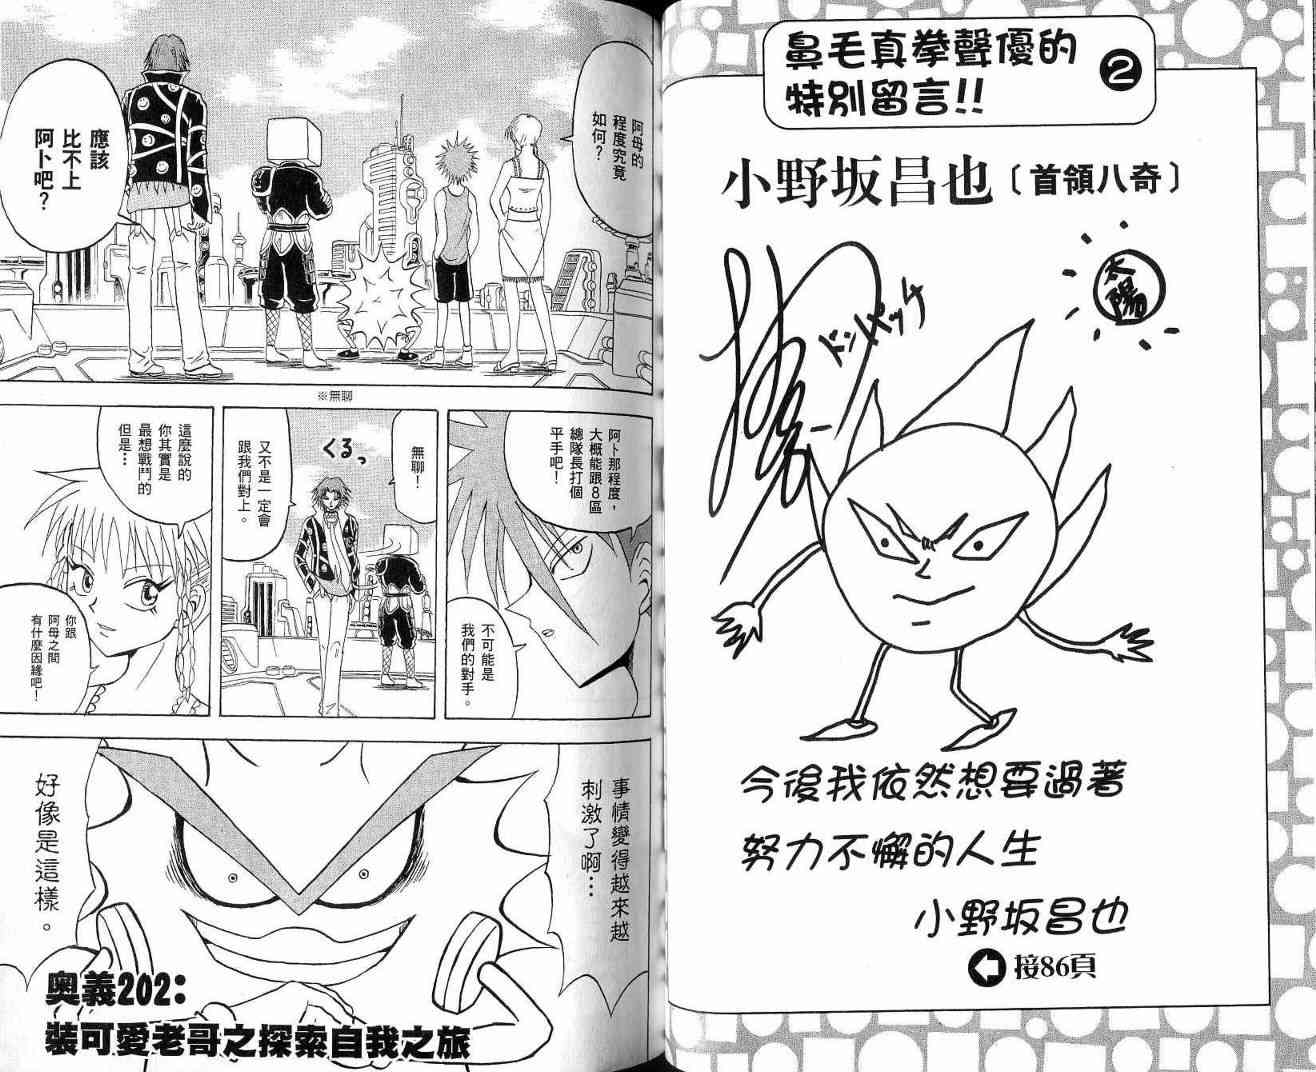 鼻毛真拳聲優的
特別留言!!
2
小野坂昌也〔首領八奇〕
太陽
ドンパッチ
今後我依然想要過著
努力不懈的人生
小野坂昌也
接86頁
阿母的
程度究竟
如何？
應該
比不上
阿卜吧？
※無聊
阿卜那程度，
大概能跟8區
總隊長打個
平手吧！
不可能是
我們的對手。
無聊！
くるっ
又不是一定會
跟我們對上。
這麼說的
你其實是
最想戰鬥的
但是…
你跟
阿母之間
有什麼因緣吧！
事情變得越來越
刺激了啊…
好像是這樣。
奧義202：
裝可愛老哥之探索自我之旅